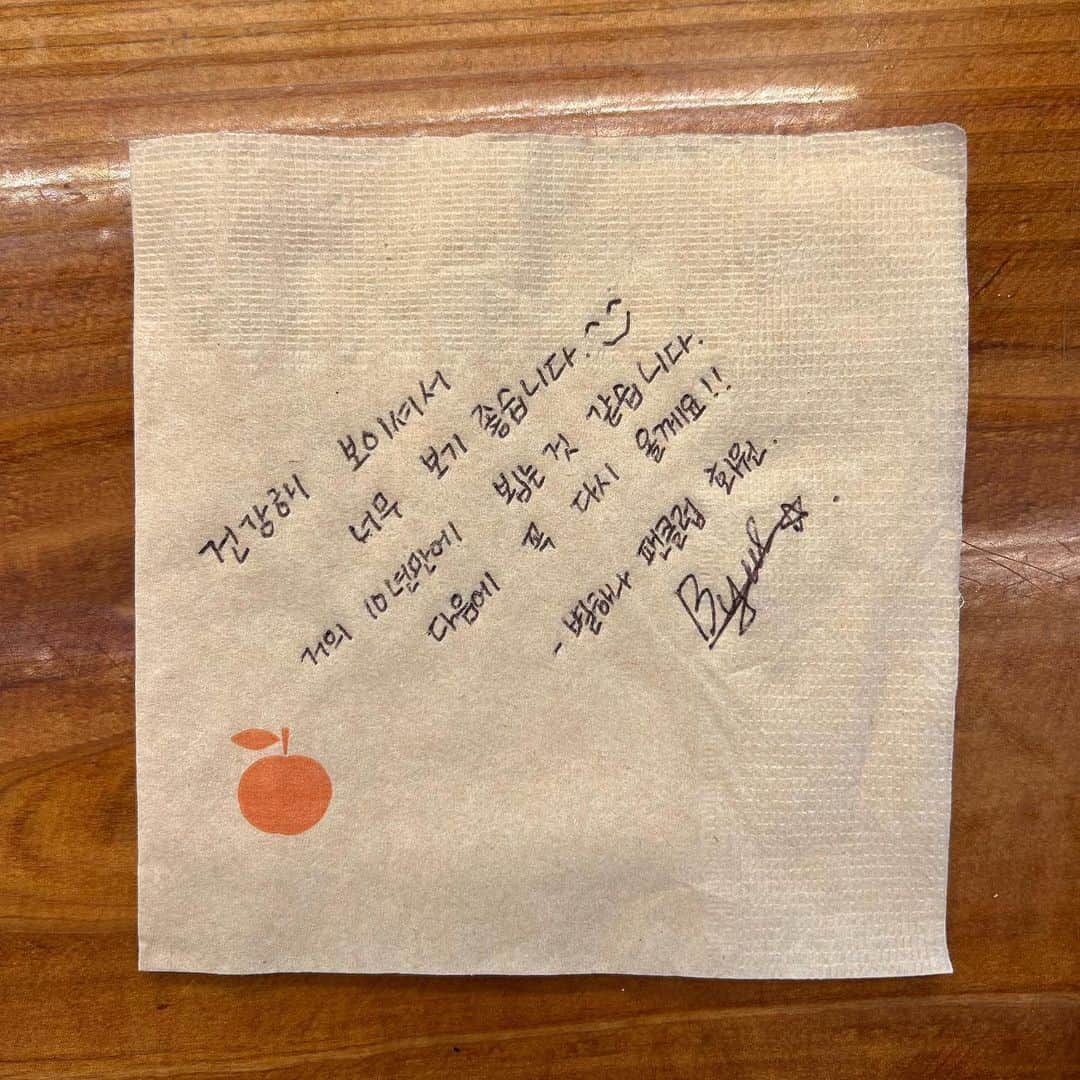 건강해 보이셔서
너무 보기 좋습니다.
거의 10년만에 뵙는 것 같습니다.
다음에 꼭 다시 올께요!!
- 별해나 팬클럽 회원.
Byul